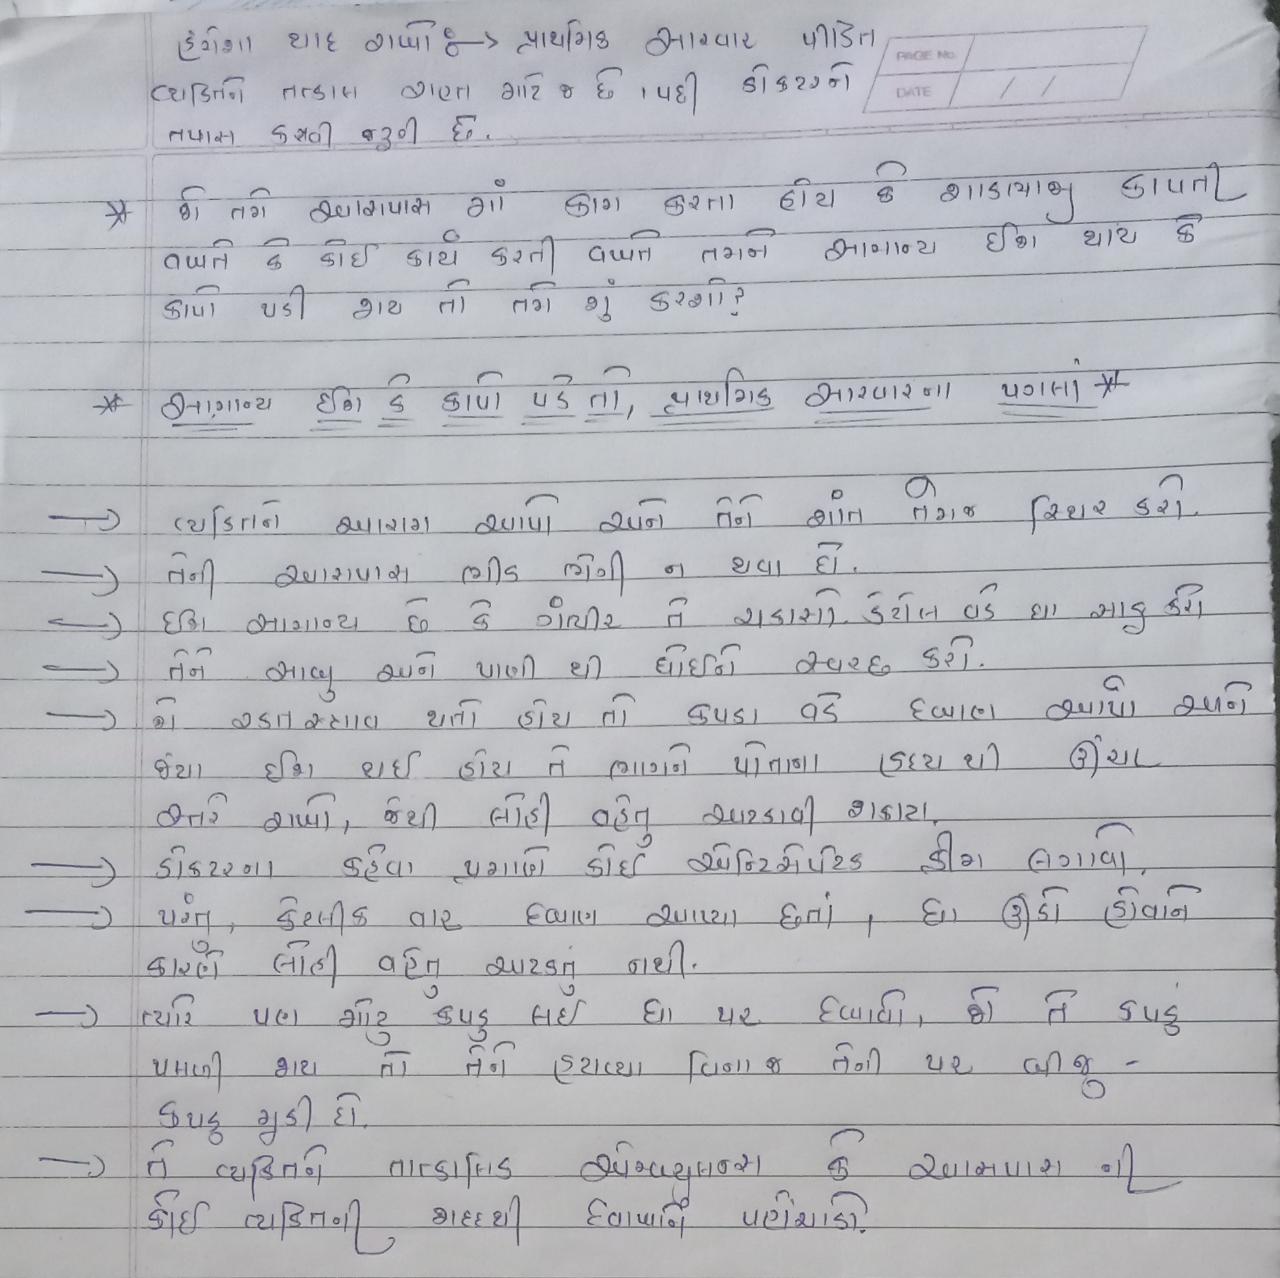 હંમેશા યાદ રાખો કે → પ્રાથમિક સારવાર પીડિત
PAGE No.
DATE / /
વ્યક્તિને તત્કાલ રાહત માટે જ છે, પછી ડોકટરને
તપાસ કરાવી જરૂરી છે.
* જો તમે આસપાસ માં કામ કરતા હોય કે શાકભાજી કાપતી
વખતે કે કોઈ કાર્ય કરતી વખતે તમને સામાન્ય ઈજા થાય કે
કાપો પડી જાય તો તમે શું કરશો?
* સામાન્ય ઈજા કે કાપો પડે તો, પ્રાથમિક સારવારના પગલાં *
→ વ્યક્તિને આરામ આપો અને તેને શાંત તેમજ સ્થિર કરો.
→ તેની આસપાસ ભીડ ભેગી ન થવા દો.
→ ઈજા સામાન્ય છે કે ગંભીર તે ચકાસો. ડેટોલ વડે ઘા સાફ કરો
→ તેને સાબુ અને પાણી થી ધોઈને સ્વચ્છ કરો.
→ જો રક્તસ્ત્રાવ થતો હોય તો કપડા વડે દબાણ આપો અને
જ્યા ઈજા થઈ હોય તે ભાગને પોતાના હ્રદય થી ઊંચા
સ્તરે રાખો, જેથી લોહી વહેતુ અટકાવી શકાય.
→ ડોકટરના કહેવા પ્રમાણે કોઈ એન્ટિસેપ્ટિક ક્રીમ લગાવો.
→ પરંતુ, કેટલીક વાર દબાણ આપ્યા છતાં, ઘા ઊંડો હોવાને
કારણે લોહી વહેતુ અટકતું નથી.
→ ત્યારે પણ મોટુ કપડુ લઈ ઘા પર દબાવો, જો તે કપડું
પલળી જાય તો તેને હટાવ્યા વિના જ તેની પર બીજુ -
કપડુ મુકી દો.
→ તે વ્યક્તિને તાત્કાલિક એમ્બ્યુલન્સ કે આસપાસ ની
કોઈ વ્યક્તિની મદદથી દવાખાને પહોંચાડો.